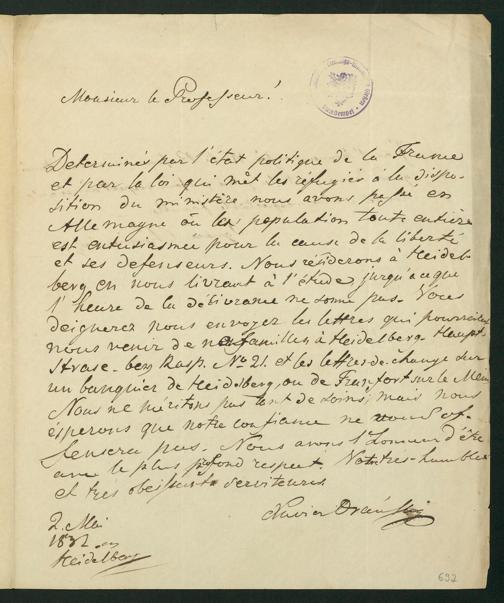 Monsieur le Professeur!
Determinés par l'état politique de la France
et par la loi qui mèt les réfugiés à la dispo-
sition du ministère nous avons passé en
Allemagne où la population toute entière
est entusiasmée pour la cause de la liberté
et ses defenseurs. Nous résiderons à Heidel
berg en nous livrant à l'étude jusqu'à ce que
l'heure de la délivrance ne sonne pas. Vous
deignerez nous envoyer les lettres qui pourraient
nous venir de nos familles à Heidelberg. Haupt-
Strase. bey Rasp. No 21. et les lettres-de-change sur
un banquier de Heidelberg, ou de Francfort sur le Mein
Nous ne méritons pas tant de soins, mais nous
ésperons que notre confiance ne vous of-
fensera pas. Nous avons l'honneur d'être
avec le plus profond respect. Vos très-humbles
et très obeissants serviteurs
Xavier
2. Mai
1832 en
Heidelberg
692